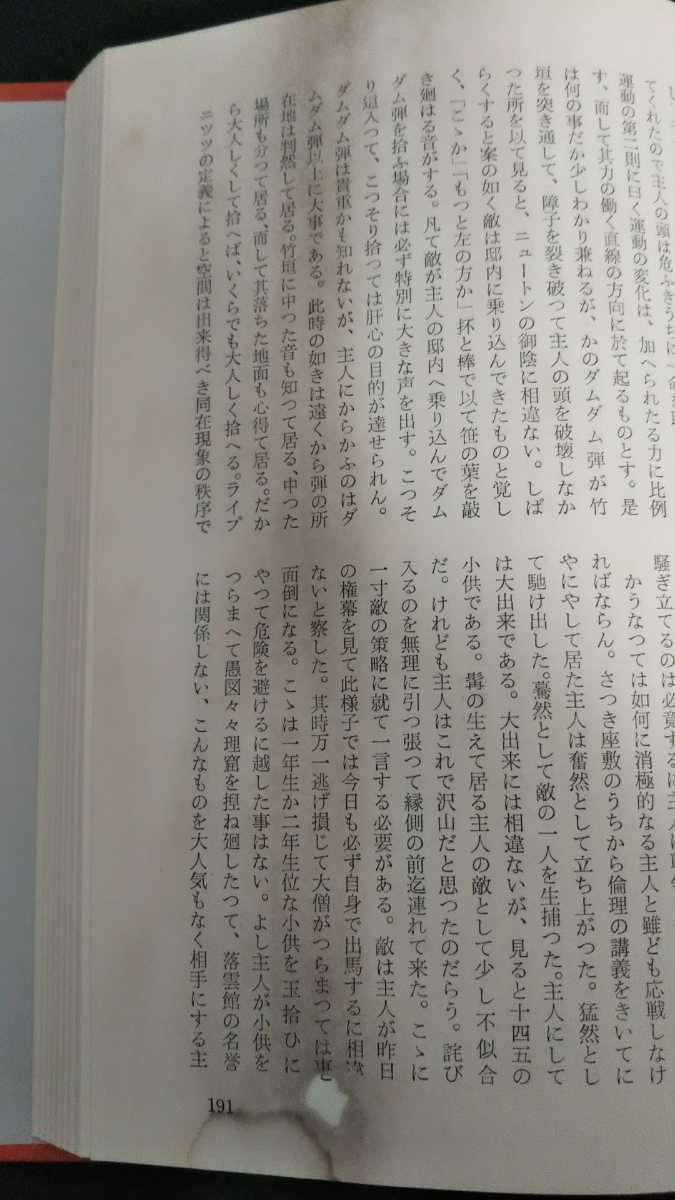 てくれたので主人の頭は危ふきうちに一命を取
運動の第二則に曰く運動の変化は、加へられたる力に比例
す、而して其力の働く直線の方向に於て起るものとす。是
は何の事だか少しわかり兼ねるが、かのダムダム弾が竹
垣を突き通して、障子を裂き破つて主人の頭を破壊しなか
つた所を以て見ると、ニュートンの御陰に相違ない。しば
らくすると案の如く敵は邸内に乗り込んできたものと覚し
く、「こゝか」「もつと左の方か」抔と棒で以て笹の葉を敲
き廻はる音がする。凡て敵が主人の邸内へ乗り込んでダム
ダム弾を拾ふ場合には必ず特別に大きな声を出す。こつそ
り這入つて、こつそり拾つては肝心の目的が達せられん。
ダムダム弾は貴重かも知れないが、主人にからかふのはダ
ムダム弾以上に大事である。此時の如きは遠くから弾の所
在地は判然して居る。竹垣に中つた音も知つて居る、中つた
場所も分つて居る、而して其落ちた地面も心得て居る。だか
ら大人しくして拾へば、いくらでも大人しく拾へる。ライプ
ニツツの定義によると空間は出来得べき同在現象の秩序で
騒ぎ立てるのは必竟するに主人に
かうなつては如何に消極的なる主人と雖ども応戦しなけ
ればならん。さつき座敷のうちから倫理の講義をきいてに
やにやして居た主人は奮然として立ち上がつた。猛然とし
て馳け出した。驀然として敵の一人を生捕つた。主人にして
は大出来である。大出来には相違ないが、見ると十四五の
小供である。髯の生えて居る主人の敵として少し不似合
だ。けれども主人はこれで沢山だと思つたのだらう。詫び
入るのを無理に引つ張つて縁側の前迄連れて来た。こゝに
一寸敵の策略に就て一言する必要がある。敵は主人が昨日
の権幕を見て此様子では今日も必ず自身で出馬するに相違
ないと察した。其時万一逃げ損じて大僧がつらまつては事
面倒になる。こゝは一年生か二年生位な小供を玉拾ひに
やつて危険を避けるに越した事はない。よし主人が小供を
つらまへて愚図々々理窟を捏ね廻したつて、落雲館の名誉
には関係しない、こんなものを大人気もなく相手にする主
191